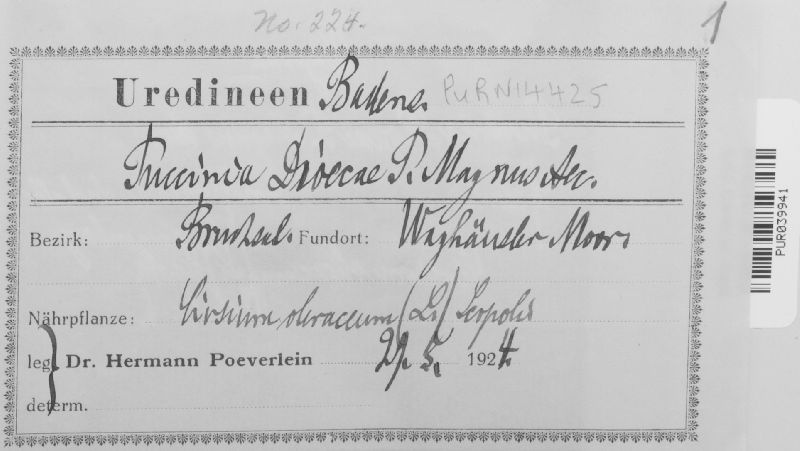 No. 224.
1
Uredineen Badens. PURN14425
Puccinia Dioecae P. Magnus Aec.
Bezirk: Bruchsal. Fundort: Waghäusler Moor.
Nährpflanze: Cirsium oleraceum (L.) Scopoli
leg. Dr. Hermann Poeverlein 29. 5. 1924.
determ.
PUR039941